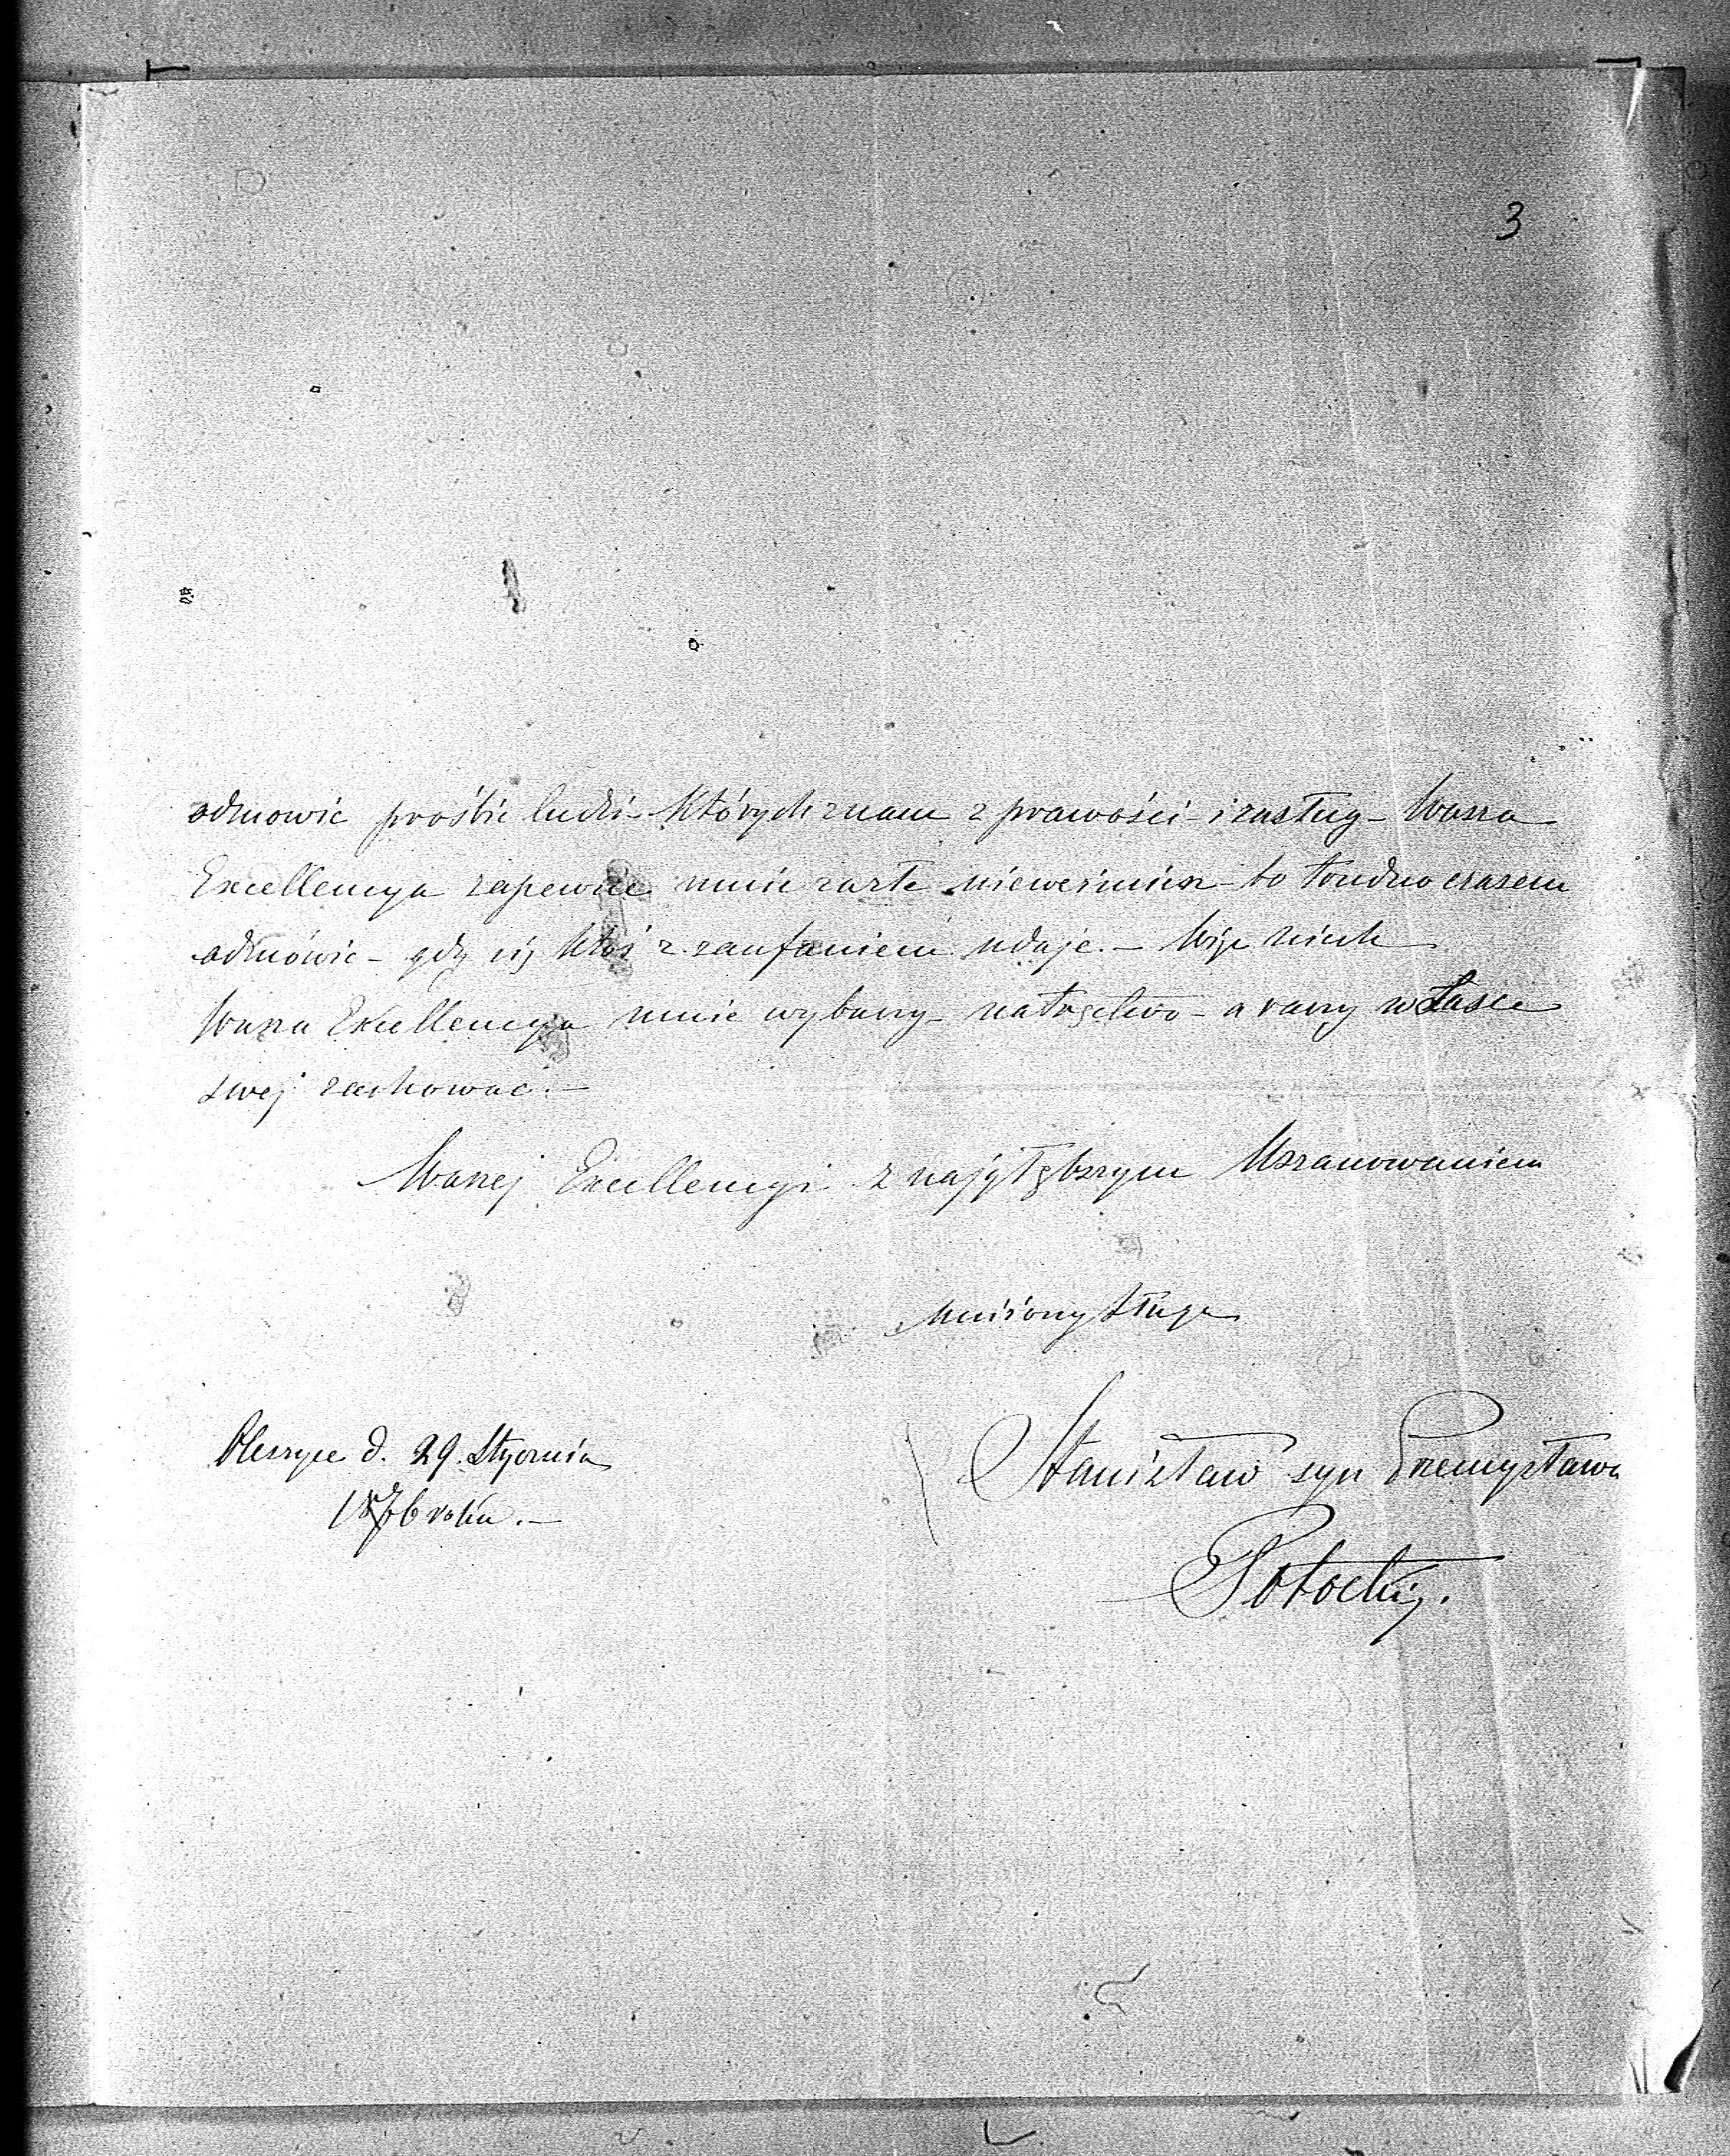 3
odmowić prośbie ludzi - których znam z prawości - i zasług - Wasza
Excellencya zapewne mnie za złe nieweźmiesz - bo trudno czasem
odmówić - gdy się ktoś z zaufaniem udaje. - Więc niech
Wasza Excellencya mnie wybaczy - natręctwo - a raczy w Łasce
swej zachować. -
Waszej Excellencyi z najgłębszym Uszanowaniem
uniżony Sługa
Oleszyce d. 29. Stycznia
1876 roku. -
Stanisław syn Przemysława
Potocki.